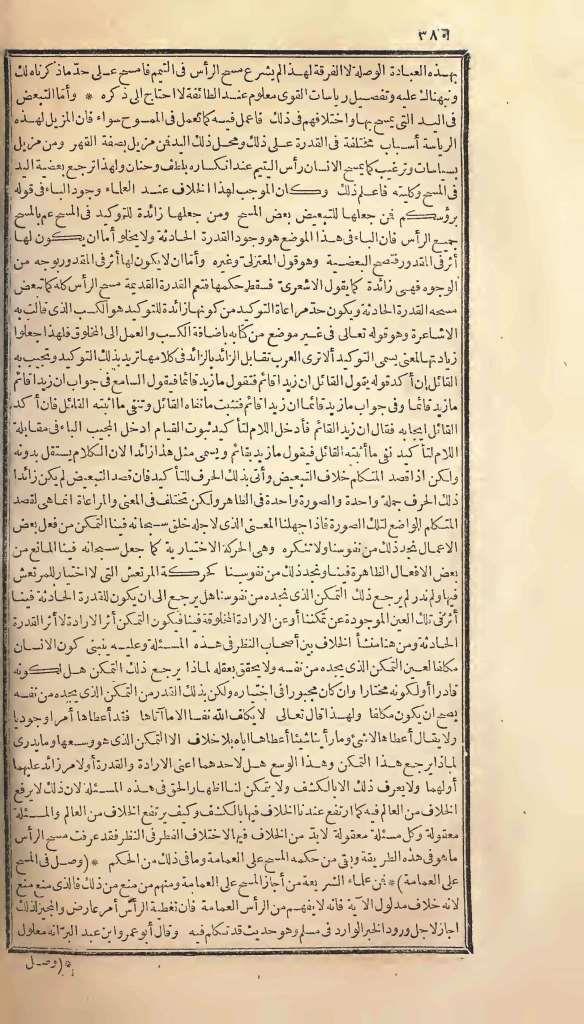 ٣٨٣
بهذه العبادة الوصلة لا الفرقة لهذا لم يشرع مسح الرأس في التيمم فامسح على حد ما ذكرناه لك
ونبهناك عليه وتفصيل رياسات القوى معلوم عند الطائفة لا احتاج الى ذكره * وأما التبعيض
في اليد التي يمسح بها واختلافهم في ذلك فاعمل فيه كما تعمل في الممسوح سواء فان المزيل لهذه
الرياسة أسباب مختلفة في القدرة على ذلك ومحل ذلك اليد فمن مزيل بصفة القهر ومن مزيل
بسياسات وترغيب كما يمسح الانسان رأس اليتيم عند انكساره بلطف وحنان ولهذا ترجع بعضية اليد
في المسح وكليته فاعلم ذلك وكان الموجب لهذا الخلاف عند العلماء وجود الباء في قوله
برؤسكم فمن جعلها للتبعيض بعض المسح ومن جعلها زائدة للتوكيد في المسح عم بالمسح
جميع الرأس فان الباء في هذا الموضع هو وجود القدرة الحادثة ولا يخلو أما ان يكون لها
أثر في المقدور فتصح البعضية وهو قول المعتزلي وغيره وأما ان لا يكون لها أثر في المقدور بوجه من
الوجوه فهي زائدة كما يقول الاشعرى فسقط حكمها فتعم القدرة القديمة مسح الرأس كله كما تبعض
مسحه القدرة الحادثة ويكون حد مراعاة التوكيد من كونها زائدة للتوكيد هو الكسب الذى قالت به
الاشاعرة وهو قوله تعالى في غير موضع من كتابه باضافة الكسب والعمل الى المخلوق فلهذا جعلوا
زيادتها لمعنى يسمى التوكيد ألا ترى العرب تقابل الزائد بالزائد في كلامها تريد بذلك التوكيد وتجيب به
القائل ان أكد قوله يقول القائل ان زيدا قائم فتقول ما زيد قائما فيقول السامع في جواب ان زيدا قائم
ما زيد قائما وفي جواب ما زيد قائما ان زيدا قائم فتثبت ما نفاه القائل وتنفى ما اثبته القائل فان أكد
القائل ايجابه فقال ان زيدا لقائم فأدخل اللام لتأكيد ثبوت القيام ادخل المجيب الباء في مقابلة
اللام لتأكيد نفى ما أثبته القائل فيقول ما زيد بقائم ويسمى مثل هذا زائدا لان الكلام يستقل بدونه
ولكن اذا قصد المتكلم خلاف التبعيض وأتى بذلك الحرف للتأكيد فان قصد التبعيض لم يكن زائدا
ذلك الحرف جملة واحدة والصورة واحدة في الظاهر ولكن تختلف في المعنى والمراعاة انما هى لقصد
المتكلم الواضع لتلك الصورة فاذا جهلنا المعنى الذى لاجله خلق سبحانه فينا التمكن من فعل بعض
الاعمال نجد ذلك من نفوسنا ولا ننكره وهى الحركة الاختيارية كما جعل سبحانه فينا المانع من
بعض الافعال الظاهرة فينا ونجد ذلك من نفوسنا كحركة المرتعش التى لا اختيار للمرتعش
فيها ولم ندر لم يرجع ذلك التمكن الذى نجده من نفوسنا هل يرجع الى ان يكون للقدرة الحادثة فينا
أثر في تلك العين الموجودة عن تمكننا أو عن الارادة المخلوقة فينا فيكون التمكن أثر الارادة لا أثر القدرة
الحادثة ومن هنا منشأ الخلاف بين أصحاب النظر في هذه المسئلة وعليه ينبنى كون الانسان
مكلفا لعين التمكن الذى يجده من نفسه ولا يحقق بعقله لماذا يرجع ذلك التمكن هل لكونه
قادرا أو لكونه مختارا وان كان مجبورا في اختياره ولكن بذلك القدر من التمكن الذى يجده من نفسه
يصح ان يكون مكلفا ولهذا قال تعالى لا يكلف الله نفسا الا ما آتاها فقد أعطاها أمرا وجوديا
ولا يقال أعطاها لا شئ وما رأينا شيئا أعطاها اياه بلا خلاف الا التمكن الذى هو وسعها وما يدرى
لماذا يرجع هذا التمكن وهذا الوسع هل لاحدهما اعنى الارادة والقدرة أو لامر زائد عليهما
أو لهما ولا يعرف ذلك الا بالكشف ولا يتمكن لنا اظهار الحق في هذه المسئلة لان ذلك لا يرفع
الخلاف من العالم فيه كما ارتفع عندنا الخلاف فيها بالكشف وكيف يرتفع الخلاف من العالم والمسئلة
معقولة وكل مسئلة معقولة لا بد من الخلاف فيها لاختلاف الفطر في النظر فقد عرفت مسح الرأس
ما هو في هذه الطريقة وبقى من حكمه المسح على العمامة وما في ذلك من الحكم * (وصل في المسح
على العمامة) * فمن علماء الشريعة من أجاز المسح على العمامة ومنهم من منع من ذلك فالذى منع منع
لانه خلاف مدلول الآية فانه لا يفهم من الرأس العمامة فان تغطية الرأس أمر عارض والمجيز لذلك
اجاز لاجل ورود الخبر الوارد في مسلم وهو حديث قد تكلم فيه وقال أبو عمرو ابن عبد البر انه معلول
* (وصل